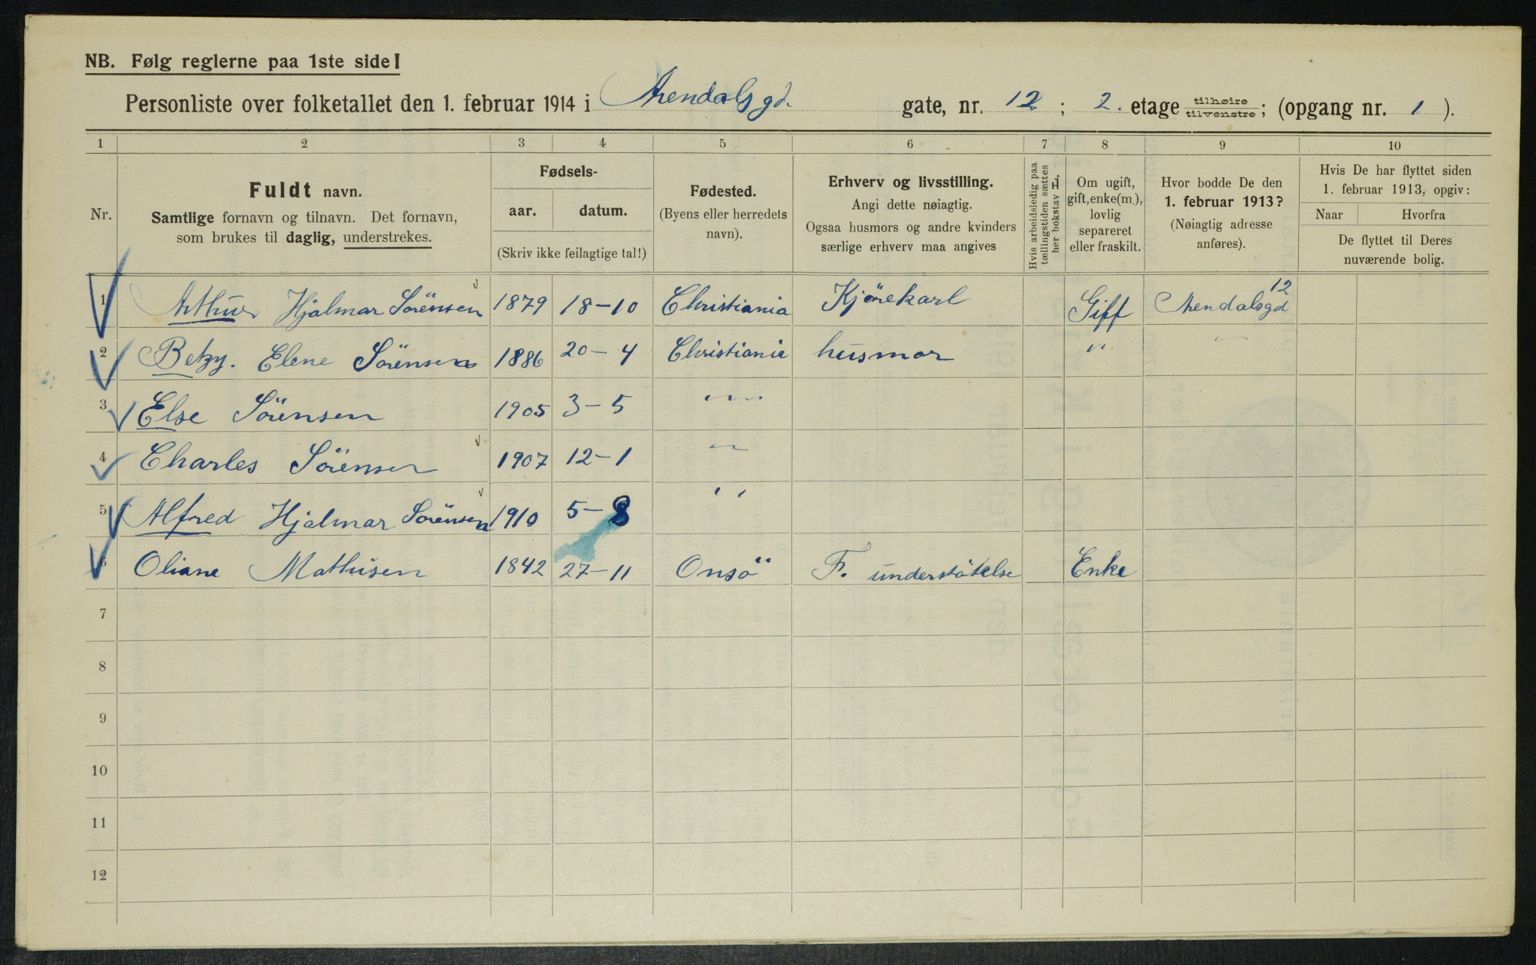 NB. Følg reglerne paa 1ste side!
Personliste over folketallet den 1. februar 1914 i Arendalsgd. gate, nr. 12 ; 2. etage tilhøire tilvenstre; (opgang nr. 1 ).
1 2 3 4 5 6 7 8 9 10
Nr.
Fuldt navn.
Samtlige fornavn og tilnavn. Det fornavn,
som brukes til daglig, understrekes.
Fødsels-
aar. datum.
(Skriv ikke feilagtige tal!)
Fødested.
(Byens eller herredets
navn).
Erhverv og livsstilling.
Angi dette nøiagtig.
Ogsaa husmors og andre kvinders
særlige erhverv maa angives
Hvis arbeidsledig paa
tællingstiden sættes
her bokstav L.
Om ugift,
gift, enke(m.),
lovlig
separeret
eller fraskilt.
Hvor bodde De den
1. februar 1913?
(Nøiagtig adresse
anføres).
Hvis De har flyttet siden
1. februar 1913, opgiv:
Naar Hvorfra
De flyttet til Deres
nuværende bolig.
1 Arthur Hjalmar Sörensen 1879 18-10 Christiania Kjörekarl Gift Arendalsgd 12
2 Betzy. Elene Sörensen 1886 20-4 Christiania husmor " "
3 Else Sörensen 1905 3-5 " "
4 Charles Sörensen 1907 12-1 "
5 Alfred Hjalmar Sörensen 1910 5-8 " "
6 Oliane Mathisen 1842 27-11 Onsö F. understötelse Enke
7
8
9
10
11
12